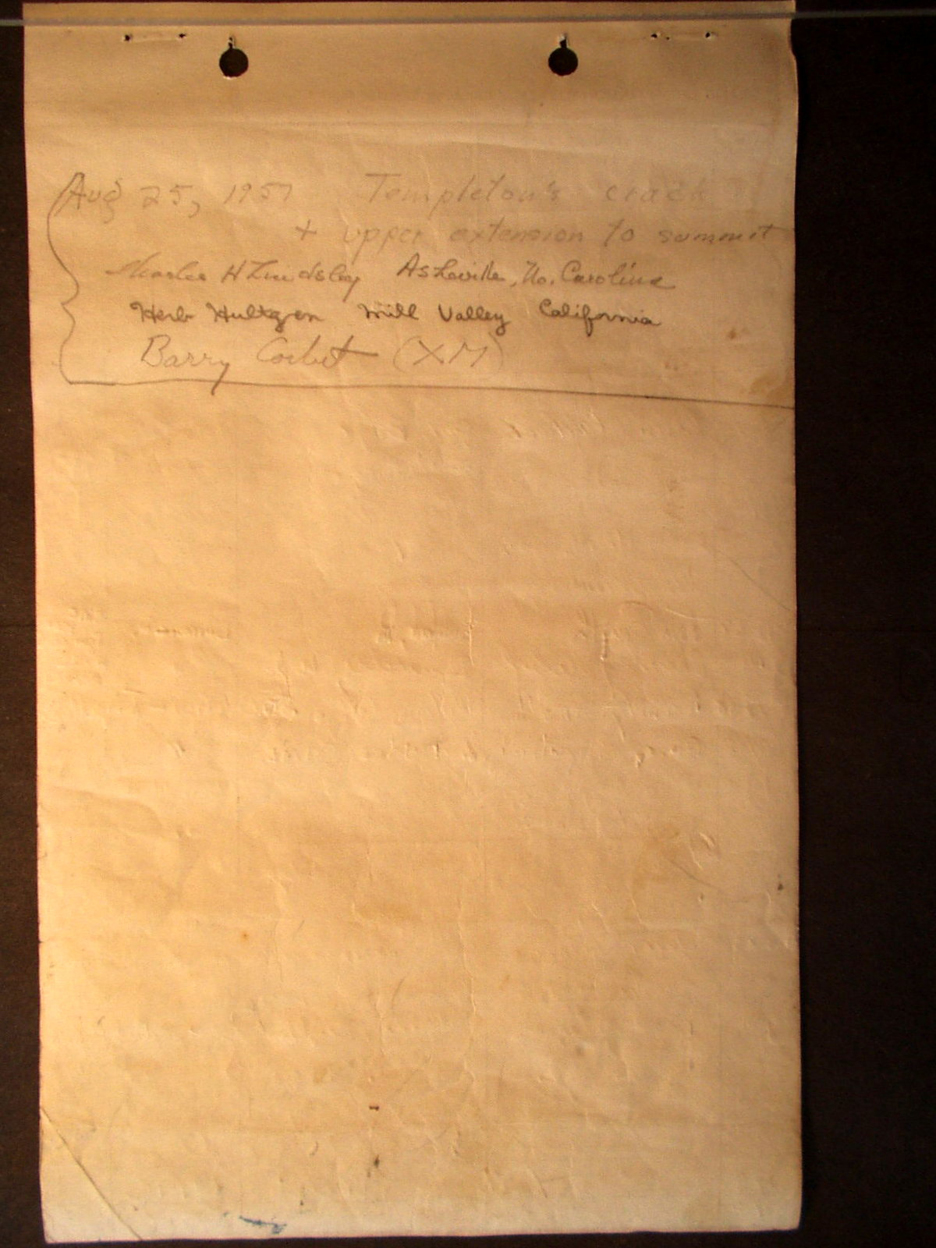 Aug 25, 1957 Templeton's crack
+ upper extension to summit
Charles H Lindsley Asheville, No. Carolina
Herb Hultgren Mill Valley California
Barry Corbet (XM)